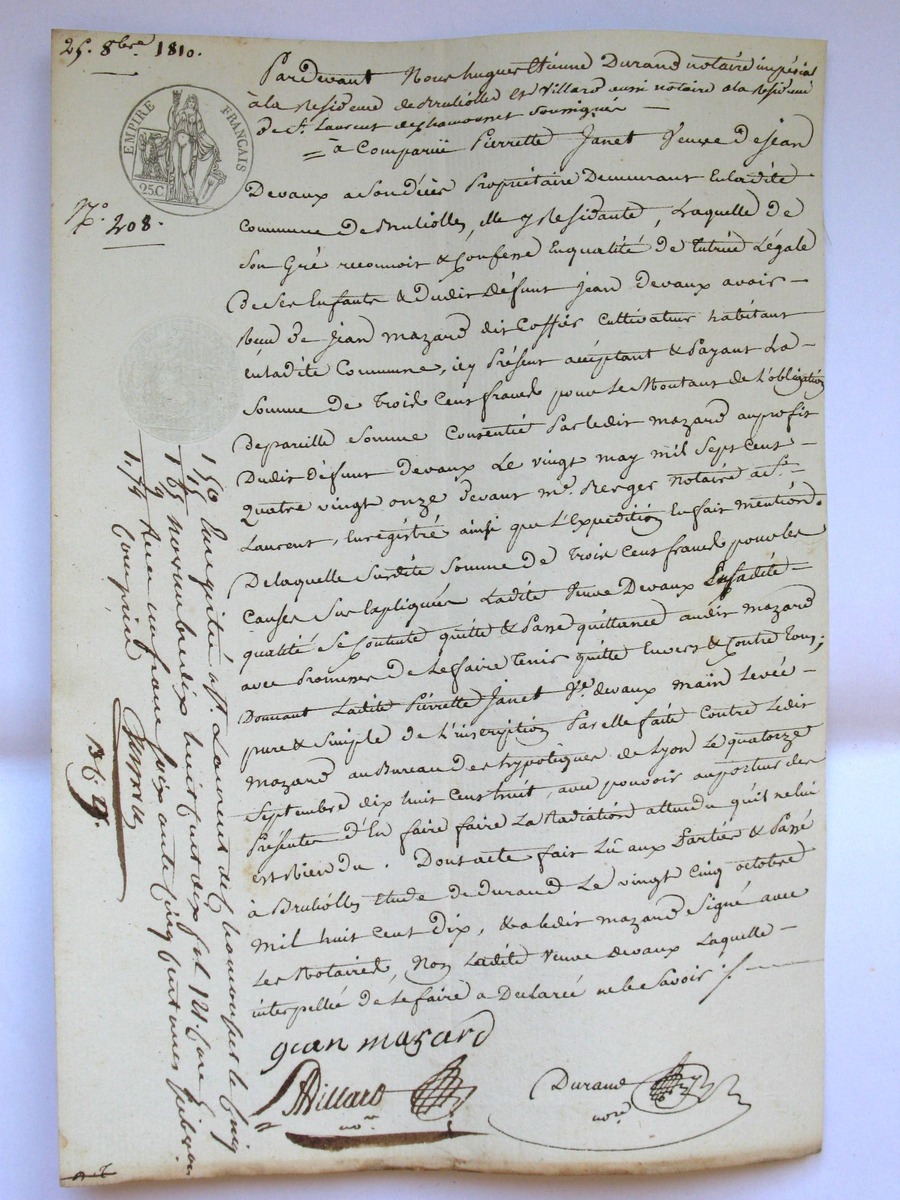 25. 8bre 1810.
EMPIRE FRANÇAIS
25C
No. 208.
Pardevant Nous hugues Etienne Durand notaire impérial
à la Residence de Brullolles et Villard aussi notaire a la Residence
de St. Laurent de chamousset soussignés
= à Comparüe Pierrette Janet Veuve de jean
Devaux a son déces Propriétaire Demeurant En ladite
Commune de Brullolles, elle y Residante, Laquelle de
Son Gré reconnoit & Confesse En qualité de Tutrice Légale
de ses Enfants & dudit défunt jean devaux avoir
Reçu de jean mazard dit Coffier Cultivateur habitant
en ladite Commune, icy Présent acceptant & Payant La
Somme de Trois Cent francs pour le Montant de L'obligation
de pareille somme Consentie Par ledit mazard au profit
Dudit défunt devaux Le vingt may mil Sept Cent
Quatre vingt onze devant me. Berger notaire a St.
Laurent, Enregistré ainsi que L'Expedition En fait mention.
De laquelle Susdite Somme de Trois Cent francs pour les
Causes Sus Expliquées Ladite Veuve Devaux En sadite
qualité se Contente quitte & Passe quittance audit mazard
avec Promesses de le faire tenir quitte Envers & Contre tous;
Donnant Ladite Pierrette Janet Ve. devaux main levée
pure & Simple de L'inscription Par elle faite Contre ledit
mazard au Bureau des hypotéques de Lyon Le quatorze
Septembre dix huit Cent huit, avec pouvoir au porteur des
Présentes d'En faire faire La Radiation attendu qu'il ne lui
est Rien du. Dont acte fait Lû aux Parties & Passé
à Brullolles Etude de Durand Le vingt Cinq octobre
mil huit Cent Dix, & a ledit mazard Signé avec
Les Notaires, Non Ladite Veuve devaux Laquelle
interpellée de le faire a Déclaré ne le Savoir ./.
jean mazard
Villard
nore
Durand
nore
Enregistré à St. Laurent de chamousset le Cinq
novembre dix huit cent dix fol 121
Reçu un franc soixante cinq centimes
1 50
15
1 65